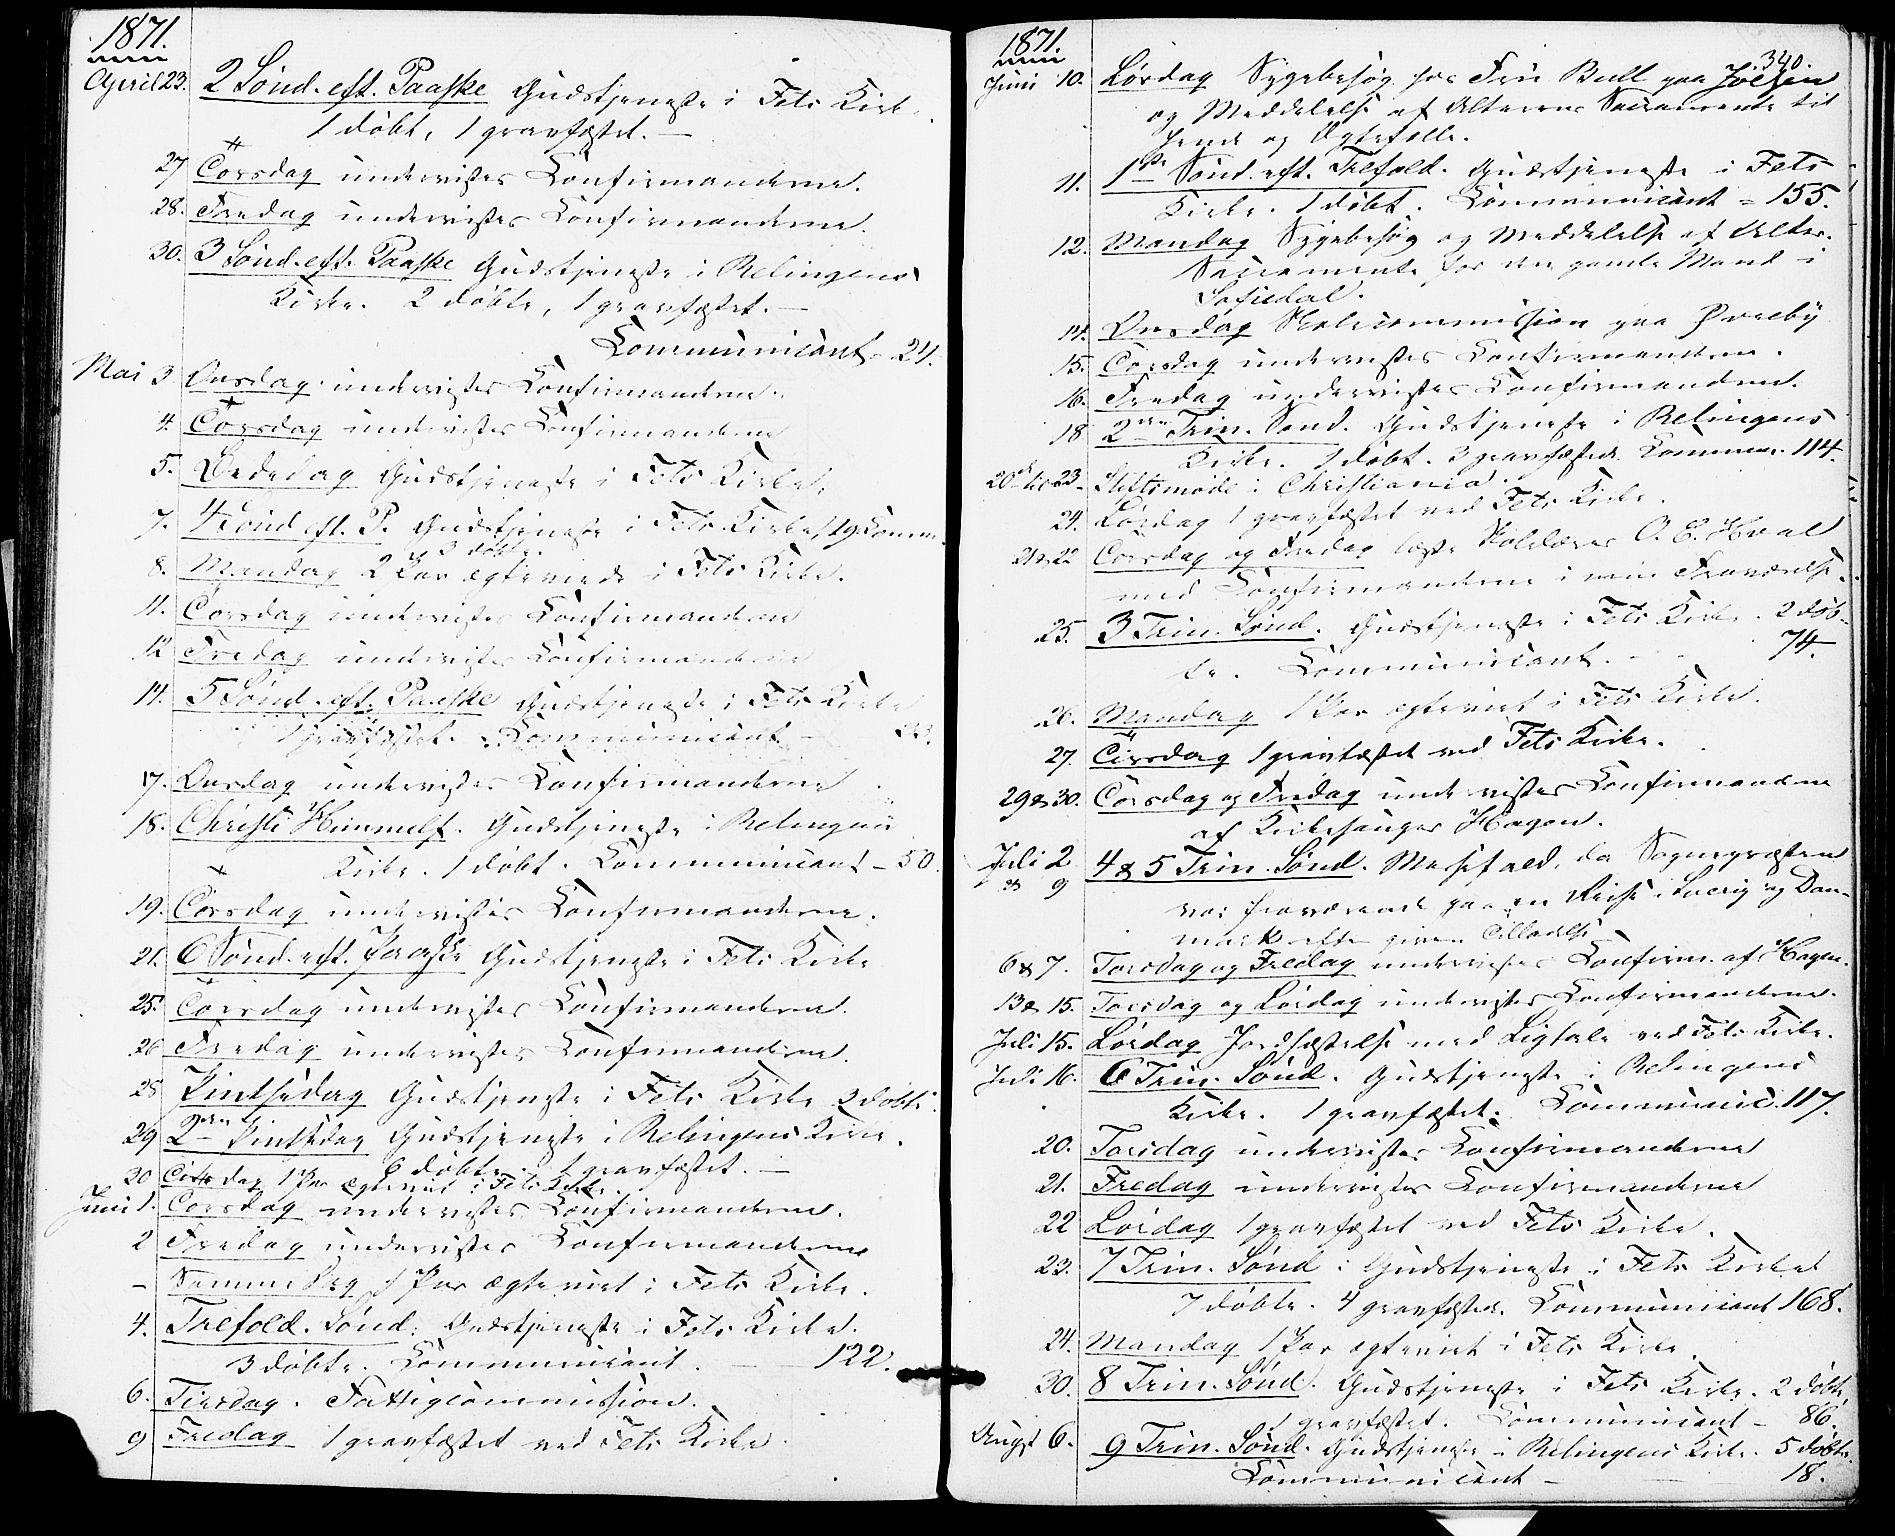 1871.
April 23. 2 Sönd. eft. Paaske Gudstjeneste i Fets Kirke.
1 døbt, 1 gravfæstet. —
27 Torsdag undervistes Confirmanderne.
28. Fredag undervistes Confirmanderne.
30. 3 Sönd. eft. Paaske Gudstjeneste i Relingens
Kirke. 2 døbte, 1 gravfæstet. —
Communicant - 24.
Mai 3 Onsdag undervistes Confirmanderne.
4. Torsdag undervistes Confirmanderne
5. Bededag Gudstjeneste i Fets Kirke.
7. 4 Sönd. eft. P. Gudstjeneste i Fets Kirke, 19 Comm.
3 døbte.
8. Mandag 2 Par ægteviede i Fets Kirke.
11. Torsdag undervistes Confirmanderne
12 Fredag undervistes Confirmanderne
14. 5 Sönd. eft. Paaske Gudstjeneste i Fets Kirke
1 gravfæstet. Communicant — 23.
17. Onsdag undervistes Confirmanderne
18. Christi Himmelf. Gudstjeneste i Relingens
Kirke. 1 døbt. Communicant - 50.
19. Torsdag undervistes Confirmanderne.
21. 6 Sönd. eft. Paaske Gudstjeneste i Fets Kirke
25. Torsdag undervistes Confirmanderne.
26 Fredag undervistes Confirmanderne.
28 Pintsedag Gudstjeneste i Fets Kirke 2 døbte.
29 2den Pintsedag Gudstjeneste i Relingens Kirke.
6 døbte. 1 gravfæstet. —
30 Tirsdag 1 Par ægteviet i Fets Kirke.
Juni 1. Torsdag undervistes Confirmanderne.
2 Fredag undervistes Confirmanderne
— Samme Dag 1 Par ægteviet i Fets Kirke.
4. Trefold. Sönd. Gudstjeneste i Fets Kirke.
3 døbte. Communicant. — 122.
6. Tirsdag. Fattigcommission.
9 Fredag 1 gravfæstet ved Fets Kirke.
1871.
340.
Juni 10. Lørdag Sygebesøg hos Fru Bull paa
og Meddelelse af Alterens Sacramente til
hende og Ægtefælle.
11. 1ste Sönd. eft. Trefold. Gudstjeneste i Fets
Kirke. 1 døbt. Communicant = 155.
12. Mandag Sygebesøg og Meddelelse af Alter.
Sacramente for den gamle Mand i
Sofiedal.
14. Onsdag Skolecommission paa Østeby
15. Torsdag undervistes Confirmanderne.
16. Fredag undervistes Confirmanderne.
18 2den Trin. Sönd. Gudstjeneste i Relingens
Kirke. 1 døbt. 3 gravfæstede. Commun. 114.
20de til 23 Stiftsmøde i Christiania.
24. Lørdag 1 gravfæstet ved Fets Kirke.
21 & 22 Torsdag og Fredag læste Skolelærer O. E. Hval
med Confirmanderne i min Fraværelse.
25. 3 Trin. Sönd. Gudstjeneste i Fets Kirke. 2 døb-
te. Communicant. — 74.
26. Mandag 1 Par ægteviet i Fets Kirke.
27. Tirsdag 1 gravfæstet ved Fets Kirke.
29 & 30. Torsdag og Fredag undervistes Confirmanderne
af Kirkesanger Hagen.
Juli 2 & 9 4 & 5 Trin. Sönd. Messefald, da Sognepresten
var fraværende paa en Reise i Sverig og Dan-
mark efter given Tilladelse
6 & 7. Torsdag og Fredag undervistes Confirm. af Hagen.
13 & 15. Torsdag og Lørdag undervistes Confirmanderne.
Juli 15. Lørdag Jordfæstelse med Ligtale ved Fets Kirke.
Juli 16. 6 Trin. Sönd. Gudstjeneste i Relingens
Kirke. 1 gravfæstet. Communic. 117.
20. Torsdag undervistes Confirmanderne
21. Fredag undervistes Confirmanderne
22 Lørdag 1 gravfæstet ved Fets Kirke.
23. 7 Trin. Sönd. Gudstjeneste i Fets Kirke
7 døbte. 4 gravfæstede. Communicant 168.
24. Mandag 1 Par ægteviet i Fets Kirke.
30. 8 Trin. Sönd. Gudstjeneste i Fets Kirke. 2 døbte,
1 gravfæstet. Communicant — 86.
August 6. 9 Trin. Sönd. Gudstjeneste i Relingens Kirke. 5 døbte.
Communicant — 18.